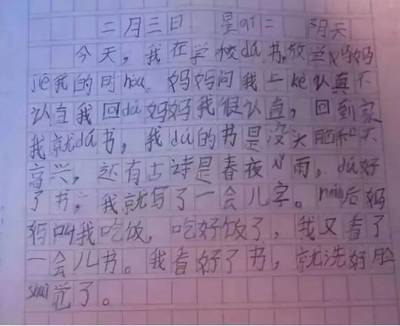 二月三日 星qi二 阴天
今天，我在学校dú书，放学妈妈
jiē我的时hou，妈妈问我上kè认真不
认真我回dá妈妈我很认真，回到家
我就dú书，我dú的书是没头脑和不
高兴，还有古诗是春夜喜雨，dú好
了书，我就写了一会儿字。rán后妈
妈叫我吃饭，吃好饭了，我又看了
一会儿书。我看好了书，就洗好脸
shuì觉了。